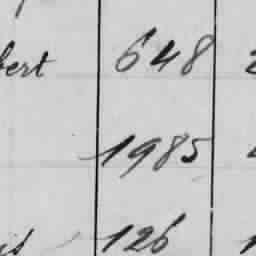 bert 648
1985
126